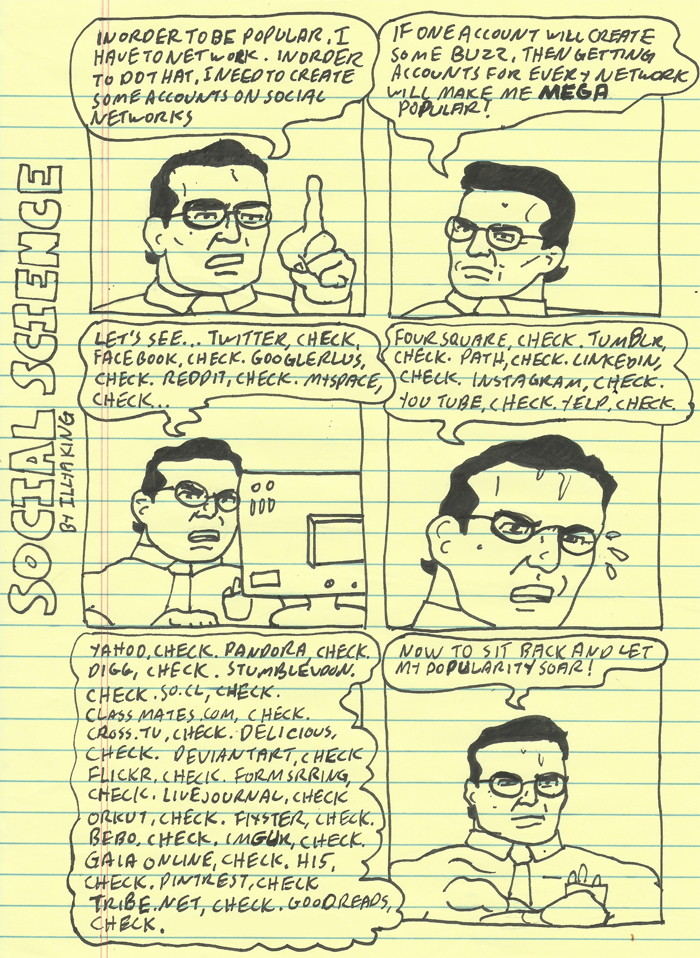 SOCIAL SCIENCE
BY ILLYA KING
IN ORDER TO BE POPULAR, I
HAVE TO NETWORK. IN ORDER
TO DO THAT, I NEED TO CREATE
SOME ACCOUNTS ON SOCIAL
NETWORKS
IF ONE ACCOUNT WILL CREATE
SOME BUZZ, THEN GETTING
ACCOUNTS FOR EVERY NETWORK
WILL MAKE ME MEGA
POPULAR!
LET'S SEE... TWITTER, CHECK.
FACEBOOK, CHECK. GOOGLEPLUS,
CHECK. REDDIT, CHECK. MYSPACE,
CHECK...
FOURSQUARE, CHECK. TUMBLR,
CHECK. PATH, CHECK. LINKEDIN,
CHECK. INSTAGRAM, CHECK.
YOUTUBE, CHECK. YELP, CHECK.
YAHOO, CHECK. PANDORA, CHECK.
DIGG, CHECK. STUMBLEUPON.
CHECK. SO.CL, CHECK.
CLASSMATES.COM, CHECK.
CROSS.TV, CHECK. DELICIOUS,
CHECK. DEVIANTART, CHECK
FLICKR, CHECK. FORMSRRING,
CHECK. LIVEJOURNAL, CHECK
ORKUT, CHECK. FIXSTER, CHECK.
BEBO, CHECK. IMGUR, CHECK.
GAIA ONLINE, CHECK. HI5,
CHECK. PINTREST, CHECK
TRIBE.NET, CHECK. GOODREADS,
CHECK.
NOW TO SIT BACK AND LET
MY POPULARITY SOAR!